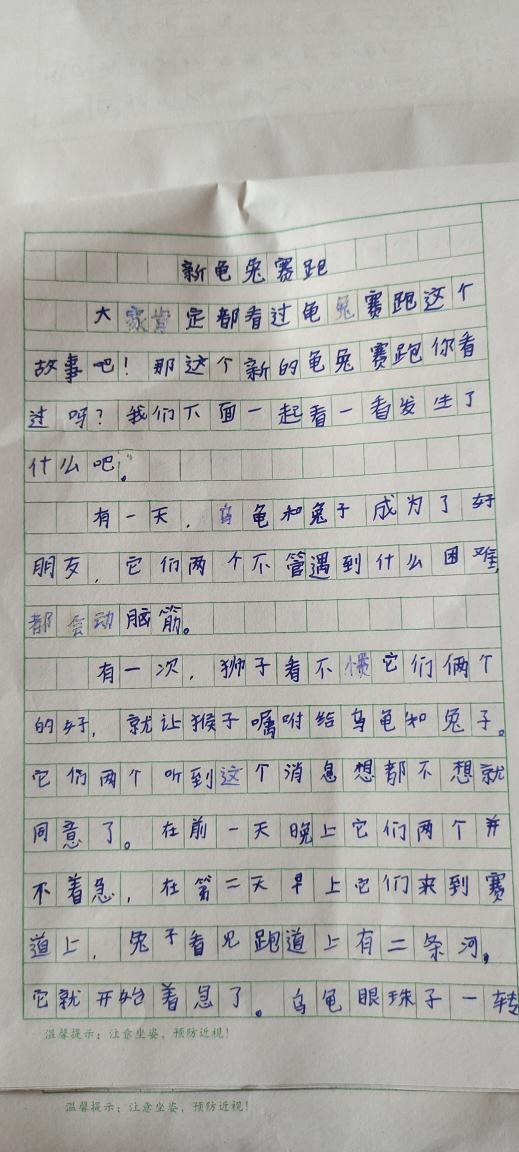 新龟兔赛跑
大家肯定都看过龟兔赛跑这个
故事吧！那这个新的龟兔赛跑你看
过吗？我们下面一起看一看发生了
什么吧。
有一天，乌龟和兔子成为了好
朋友，它们两个不管遇到什么困难，
都会动脑筋。
有一次，狮子看不惯它们俩个
的好，就让猴子嘱咐给乌龟和兔子。
它们两个听到这个消息想都不想就
同意了。在前一天晚上它们两个并
不着急，在第二天早上它们来到赛
道上，兔子看见跑道上有二条河。
它就开始着急了。乌龟眼珠子一转
温馨提示：注意坐姿，预防近视！
温馨提示：注意坐姿，预防近视！